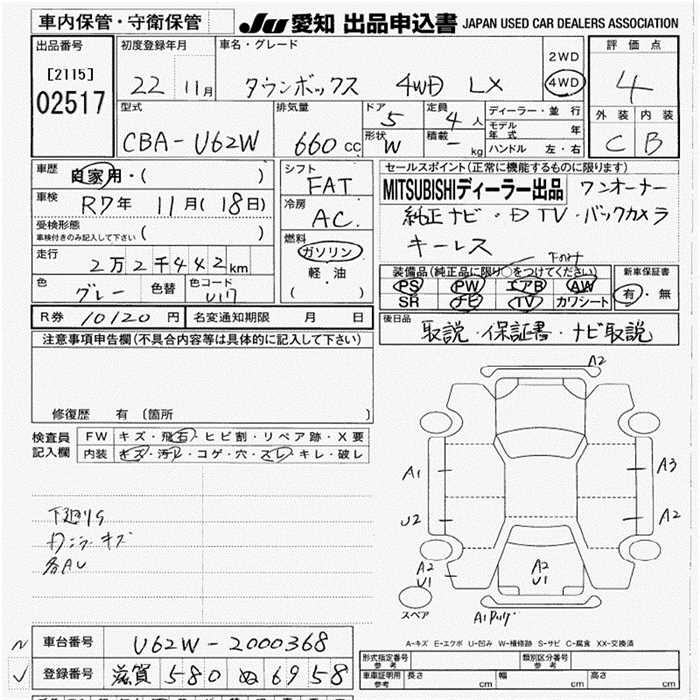 車内保管・守衛保管
JU 愛知 出品申込書 JAPAN USED CAR DEALERS ASSOCIATION
出品番号 初度登録年月 車名・グレード 2WD 評価点
[2115] 02517 22 11月 タウンボックス 4WD LX 4WD 4
型式 排気量 ドア 5 定員 4人 ディーラー・並行 外装 内装
CBA-U62W 660cc 形状 W 積載 - kg モデル年式 年 C B
ハンドル 左・右
車歴 自家用・( ) シフト FAT セールスポイント(正常に機能するものに限ります)
車検 R7年 11月(18日) 冷房 AC MITSUBISHIディーラー出品 ワンオーナー
受検形態 車検付きのみ記入して下さい ( ) 純正ナビ・DTV・バックカメラ
キーレス
走行 2万2千442km 燃料 ガソリン 軽・油 ( )
色 グレー 色替 色コード U17
装備品(純正品に限り○をつけてください) 新車保証書
PS PW エアB AW 有・無
SR ナビ TV カワシート
R券 10120円 名変通知期限 月 日
後日品 取説・保証書・ナビ取説
注意事項申告欄(不具合内容等は具体的に記入して下さい)
修復歴 有 [箇所 ]
検査員記入欄 FW キズ・飛石・ヒビ割・リペア跡・X要
内装 キズ・汚れ・コゲ・穴・スレ・キレ・破レ
A2
A1 A3
U2 A2
下廻りS
A2 U1 A2 U1
各AU
スペア
A-キズ E-エクボ U-凹み W-補修跡 S-サビ C-腐食 XX-交換済
車台番号 U62W-2000368
登録番号 滋賀 580 ぬ 6958
形式指定番号 参考 類別区分番号 参考
車庫証明用 参考 長さ cm 幅 cm 高さ cm